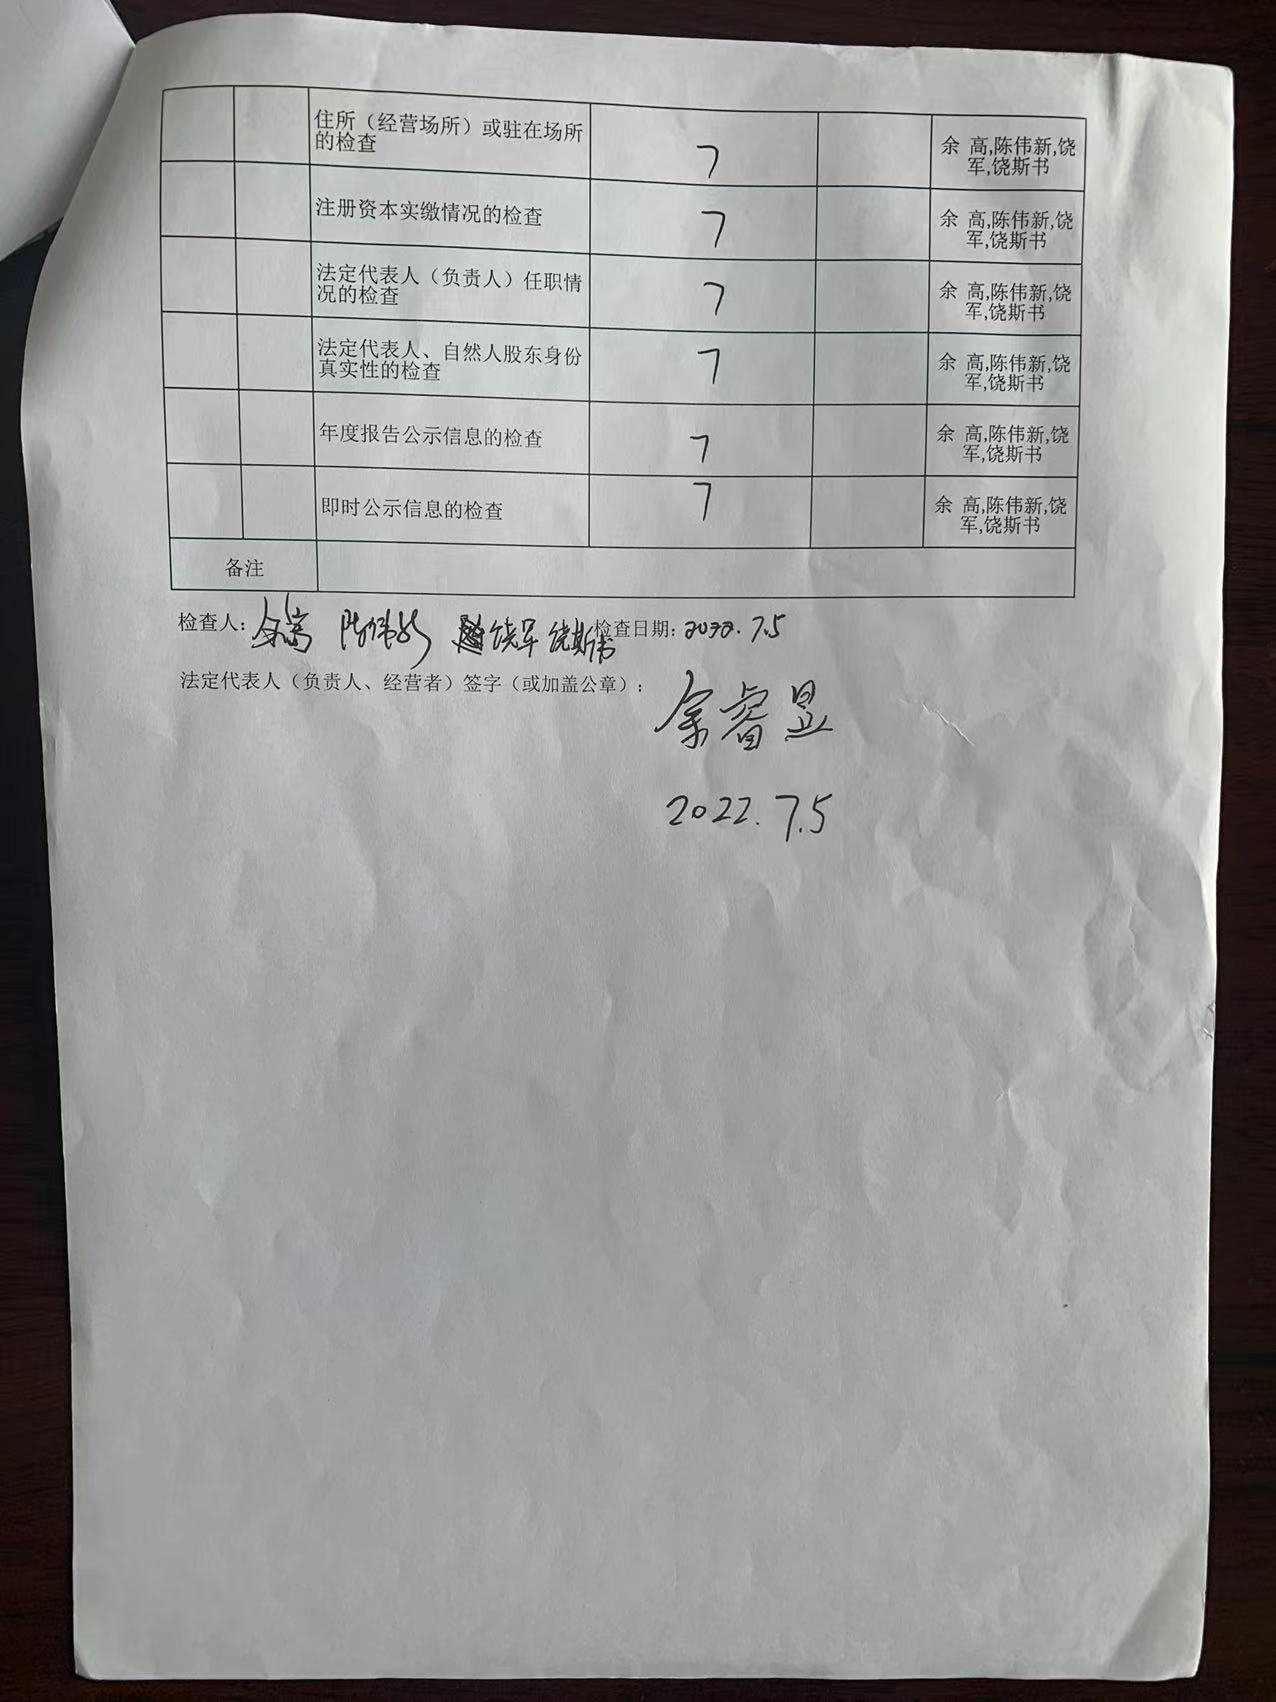 住所（经营场所）或驻在场所
的检查
7
余 高,陈伟新,饶
军,饶斯书
注册资本实缴情况的检查
7
余 高,陈伟新,饶
军,饶斯书
法定代表人（负责人）任职情
况的检查
7
余 高,陈伟新,饶
军,饶斯书
法定代表人、自然人股东身份
真实性的检查
7
余 高,陈伟新,饶
军,饶斯书
年度报告公示信息的检查
7
余 高,陈伟新,饶
军,饶斯书
即时公示信息的检查
7
余 高,陈伟新,饶
军,饶斯书
备注
检查人：余高 陈伟新 饶军 饶斯书 检查日期：2022.7.5
法定代表人（负责人、经营者）签字（或加盖公章）：
余睿昱
2022.7.5